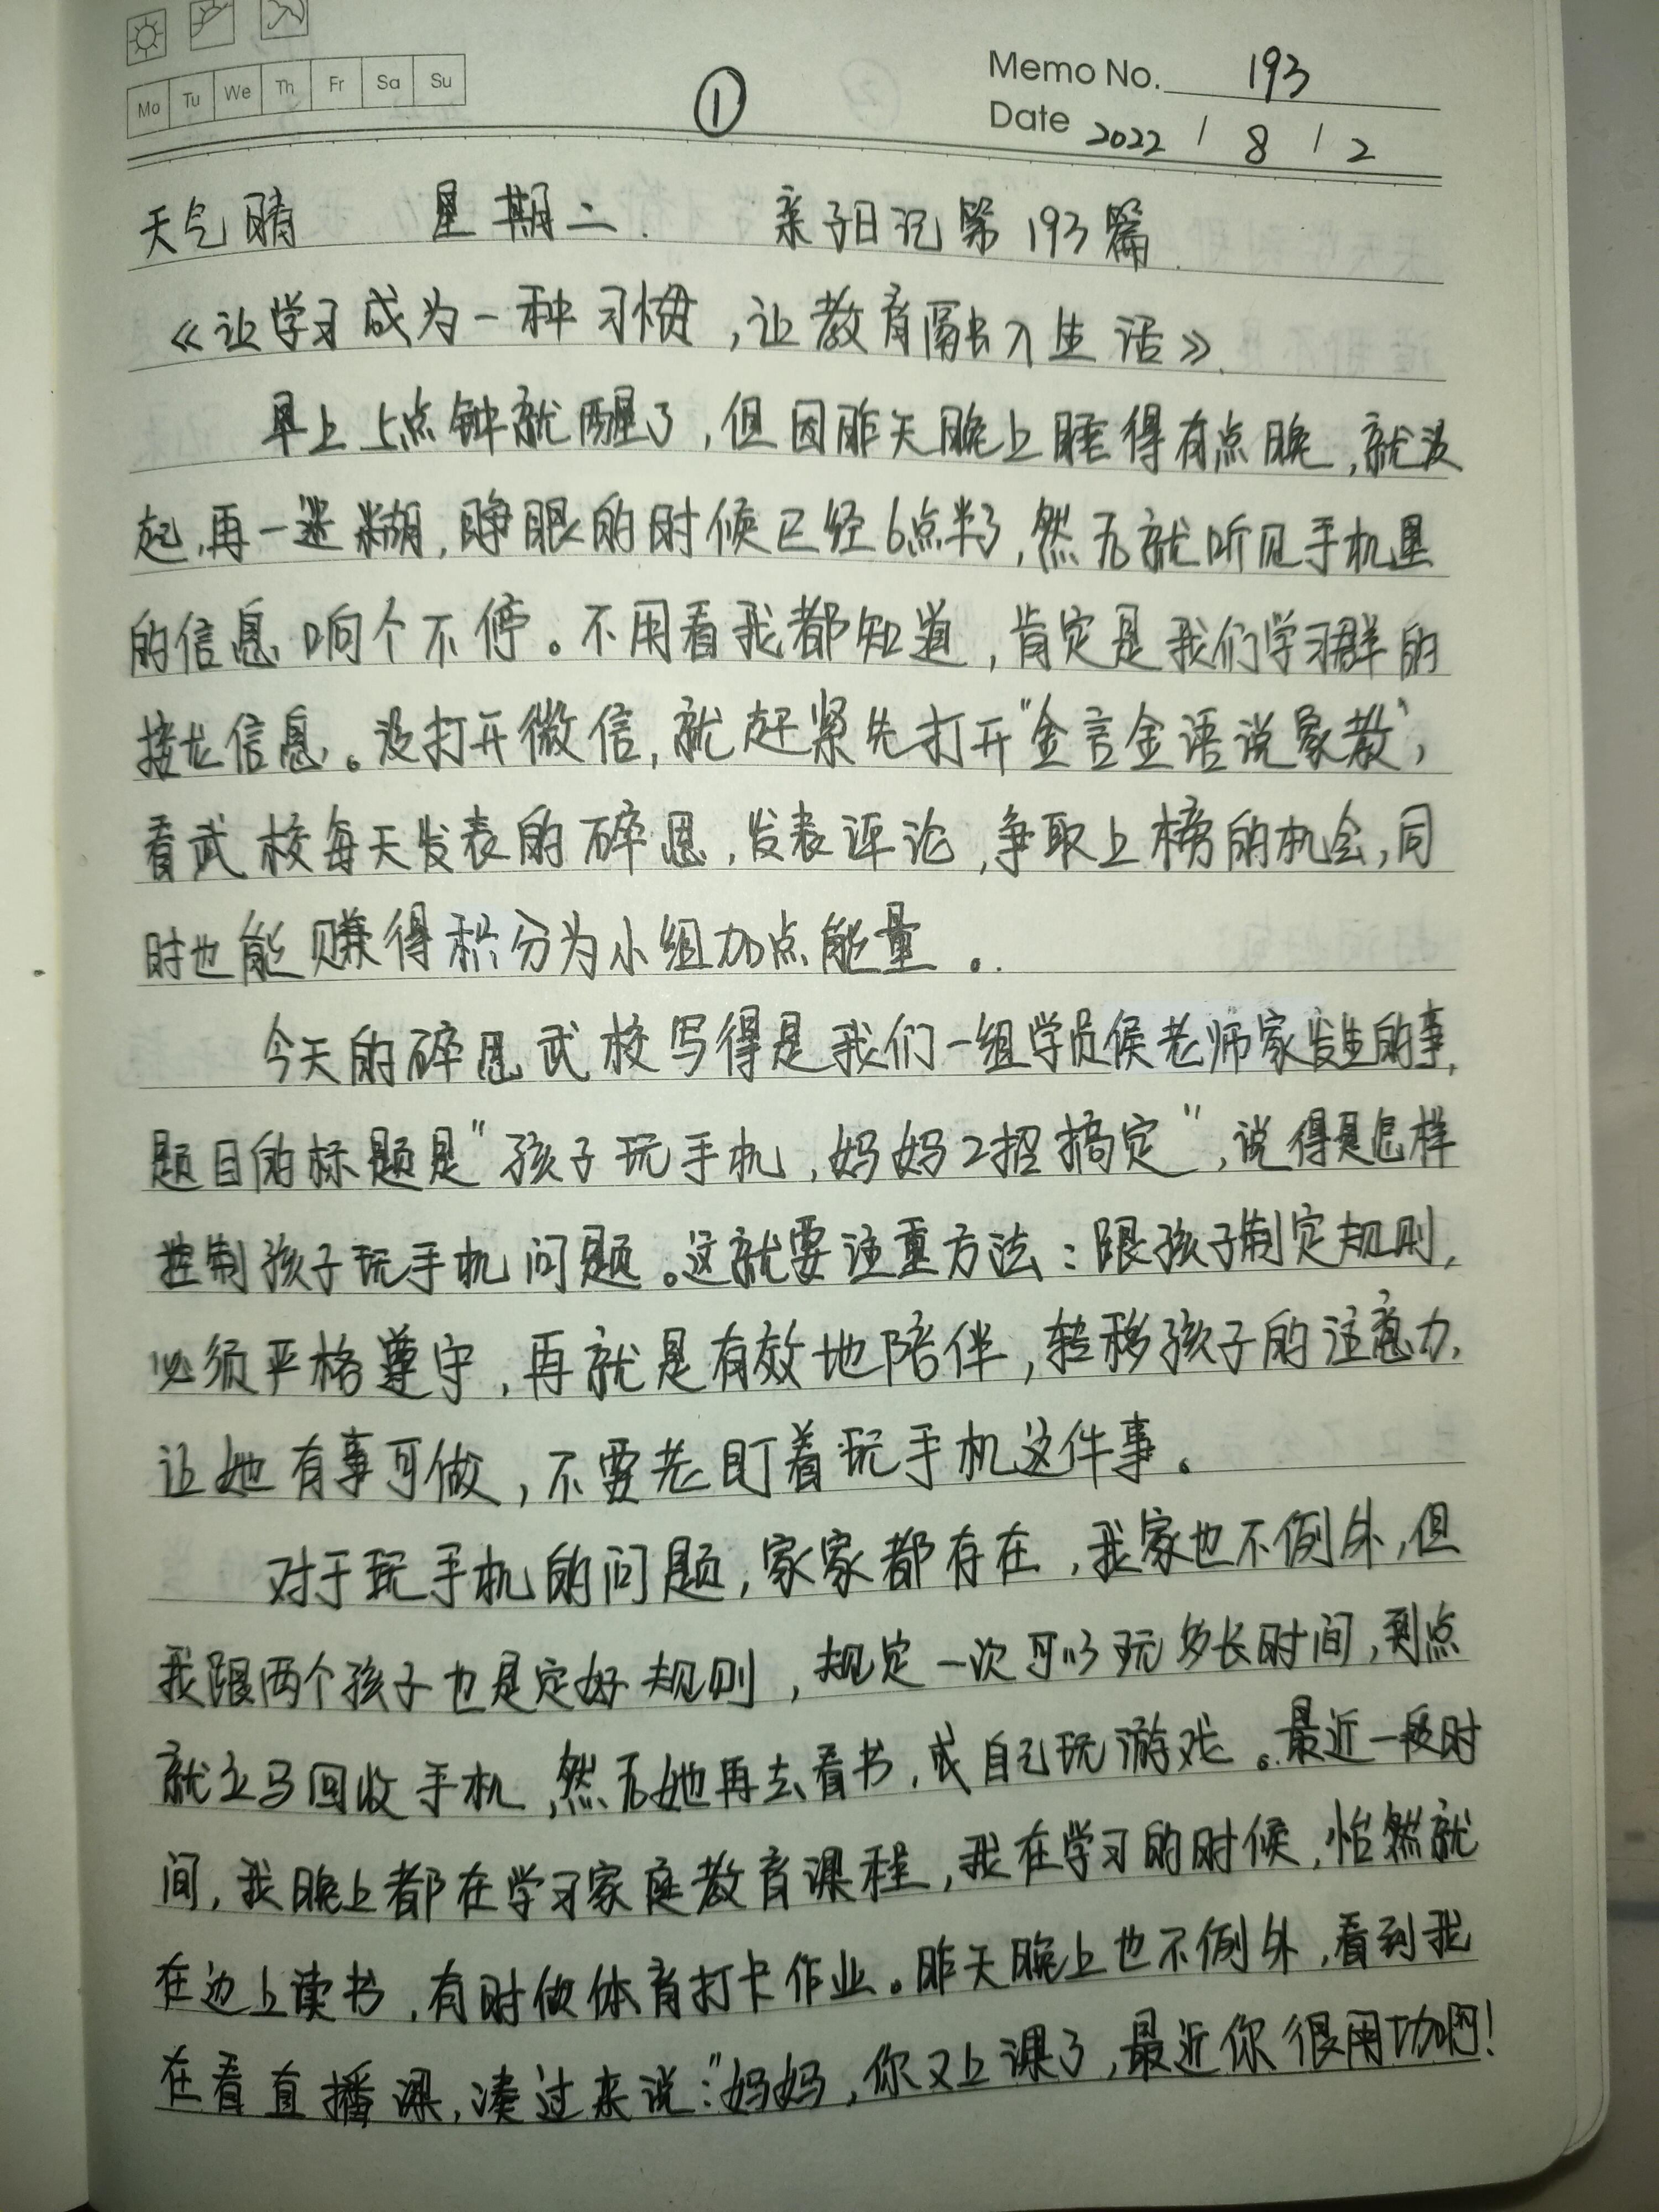 Mo Tu We Th Fr Sa Su
①
Memo No. 193
Date 2022 / 8 / 2
天气晴 星期二. 亲子日记第193篇.
《让学习成为一种习惯,让教育融入生活》.
早上5点钟就醒了,但因昨天晚上睡得有点晚,就没
起,再一迷糊,睁眼的时候已经6点半了,然后就听见手机里
的信息响个不停。不用看我都知道,肯定是我们学习群的
接龙信息。没打开微信,就赶紧先打开"金言金语说家教",
看武校每天发表的碎思,发表评论,争取上榜的机会,同
时也能赚得积分为小组加点能量。
今天的碎思武校写得是我们一组学员侯老师家发生的事,
题目的标题是"孩子玩手机,妈妈2招搞定",说得是怎样
控制孩子玩手机问题。这就要注重方法:跟孩子制定规则,
必须严格遵守,再就是有效地陪伴,转移孩子的注意力,
让她有事可做,不要老盯着玩手机这件事。
对于玩手机的问题,家家都存在,我家也不例外,但
我跟两个孩子也是定好规则,规定一次可以玩多长时间,到点
就立马回收手机,然后她再去看书,或自己玩游戏。最近一段时
间,我晚上都在学习家庭教育课程,我在学习的时候,怡然就
在边上读书,有时做体育打卡作业。昨天晚上也不例外,看到我
在看直播课,凑过来说:"妈妈,你又上课了,最近你很用功啊!